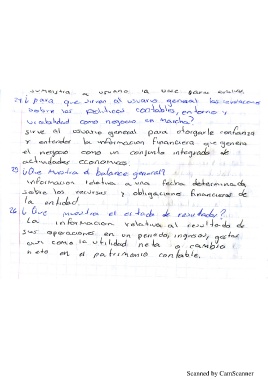 suministra a usuario la base para evaluar
24. ¿ para que sirven al usuario general las revelaciones
sobre las politicas contables, entorno y
viabilidad como negocio en marcha?
sirve al usuario general para otorgarle confianza
y entender la informacion financiera que genera
el negocio como un conjunto integrado de
actividades economicas.
25. ¿Que muestra el balance general?
informacion relativa a una fecha determinada
sobre los recursos y obligaciones financieras de
la entidad.
26. ¿ Que muestra el estado de resultados?
La informacion relativa al resultado de
sus operaciones en un periodo, ingresos, gastos
asi como la utilidad neta o cambio
neto en el patrimonio contable.
Scanned by CamScanner